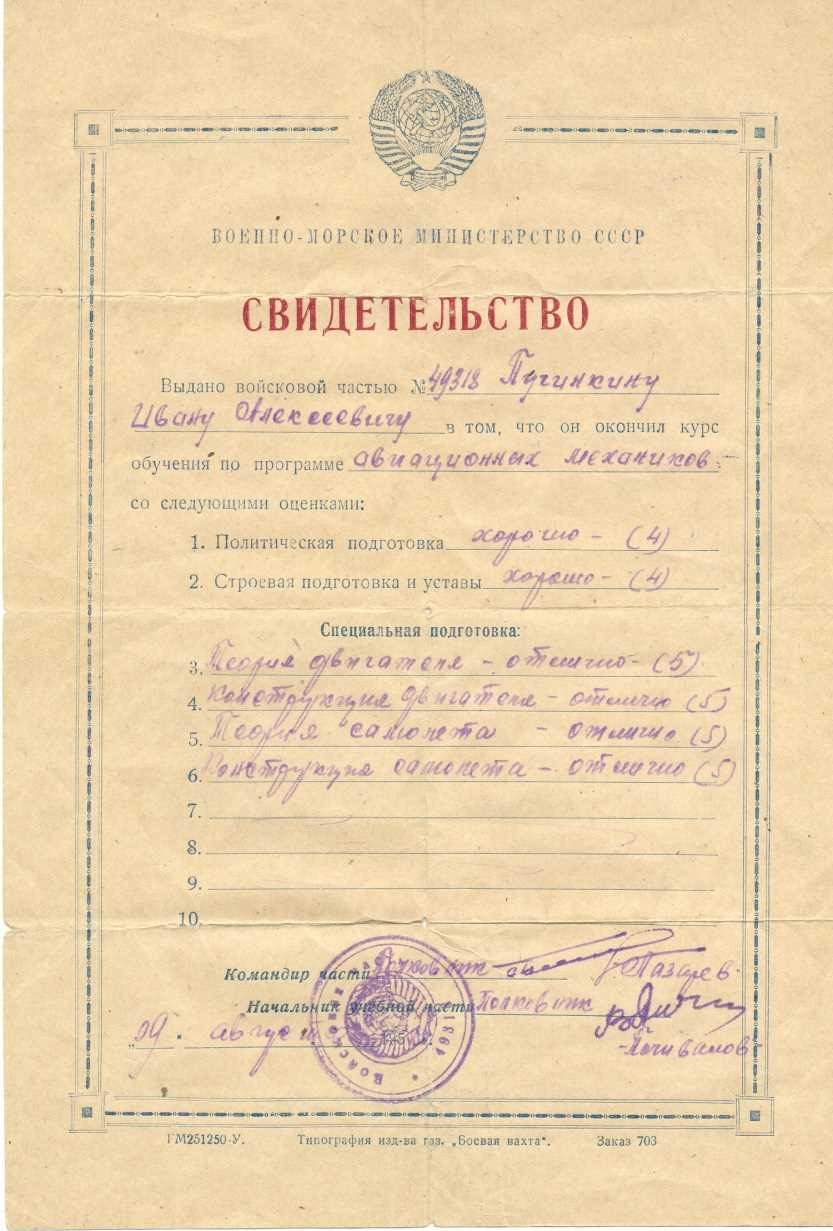 ВОЕННО-МОРСКОЕ МИНИСТЕРСТВО СССР
СВИДЕТЕЛЬСТВО
Выдано войсковой частью № 49318 Пучинкину
Ивану Алексеевичу в том, что он окончил курс
обучения по программе авиационных механиков
со следующими оценками:
1. Политическая подготовка хорошо - (4)
2. Строевая подготовка и уставы хорошо - (4)
Специальная подготовка:
3. Теория двигателя - отлично - (5)
4. Конструкция двигателя - отлично (5)
5. Теория самолета - отлично (5)
6. Конструкция самолета - отлично (5)
7.
8.
9.
10.
Командир части Полковник Лазарев
Начальник учебной части Полковник
„09 . август
Почивалов
ГМ251250-У. Типография изд-ва газ. „Боевая вахта“. Заказ 703